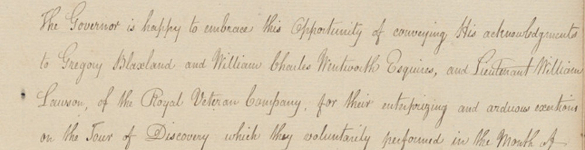 The Governor is happy to embrace this Opportunity of conveying His acknowledgments
to Gregory Blaxland and William Charles Wentworth Esquires, and Lieutenant William
Lawson, of the Royal Veteran Company, for their enterprizing and arduous exertions
on the Tour of Discovery which they voluntarily performed in the Month of